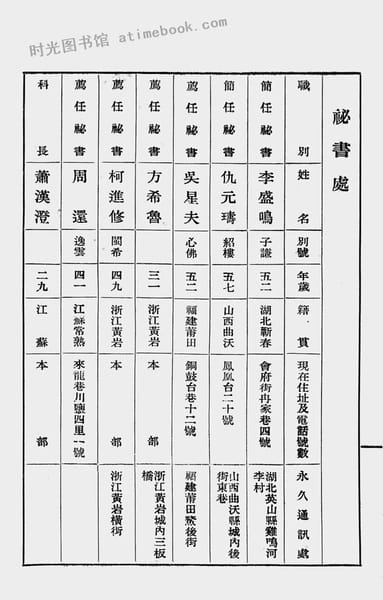 时光图书馆 atimebook.com
祕書處
職別 姓名 別號 年歲 籍貫 現在住址及電話號數 永久通訊處
簡任祕書 李盛鳴 子謙 五二 湖北蘄春 會府街冉家巷四號 湖北英山縣雞鳴河李村
簡任祕書 仇元璹 紹樓 五七 山西曲沃 鳳凰台二十號 山西曲沃縣城內後街東巷
薦任祕書 吳星夫 心佛 五二 福建莆田 銅鼓台巷十二號 福建莆田後街
薦任祕書 方希魯 三一 浙江黃岩 本部 浙江黃岩城內三板橋
薦任祕書 柯進修 閩希 四九 浙江黃岩 本部 浙江黃岩橫街
薦任祕書 周還 逸雲 四一 江蘇常熟 來龍巷川鹽四里一號
科長 蕭漢澄 二九 江蘇 本部